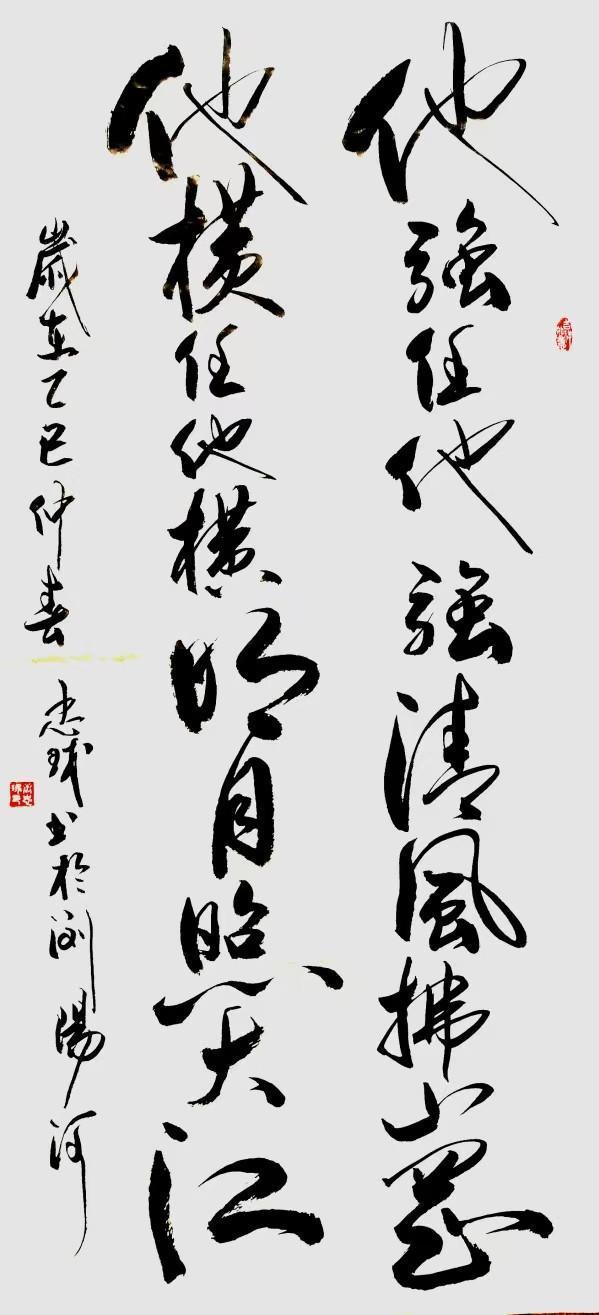 他強任他強清風拂山罡
他橫任他橫明月照大江
歲在乙巳仲春 忠球书於浏陽河